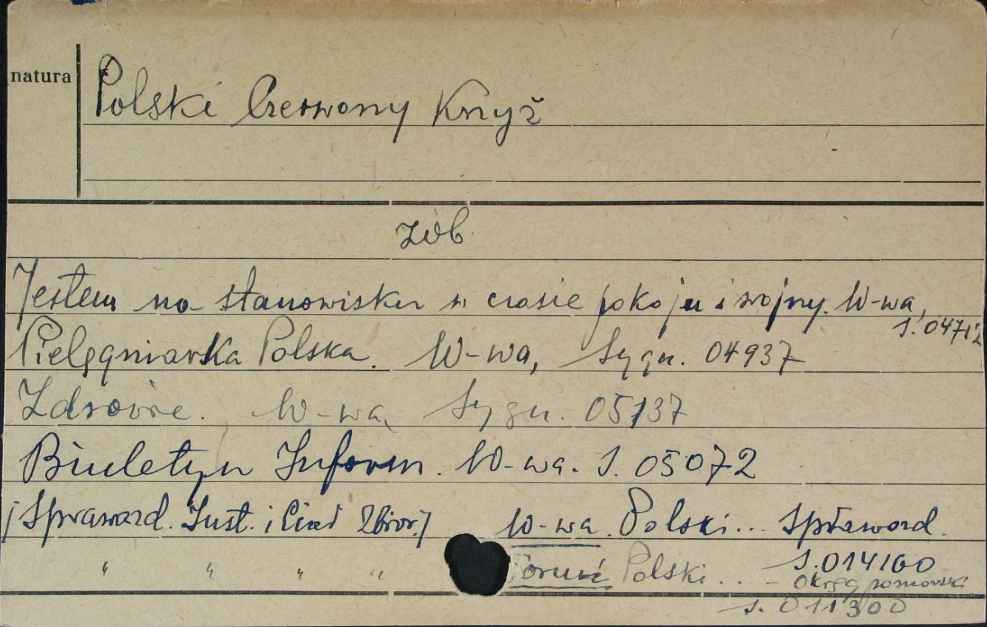 natura
Polski Czerwony Krzyż
zob.
Jestem na stanowisku w czasie pokoju i wojny. W-wa,
S. 04712
Pielęgniarka Polska. W-wa, Sygn. 04937
Zdrowie. W-wa, Sygn. 05137
Biuletyn Inform. W-wa. S. 05072
[Spraward. Inst. i Ciał Zbior.] W-wa. Polski... Spraword.
S. 014160
" " " " Toruń Polski... - Okręg pomorski
S. 011300